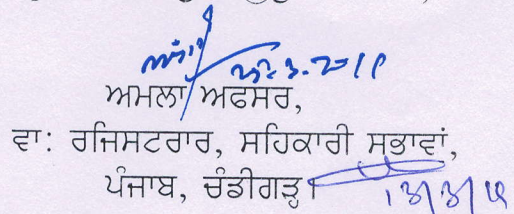 ਅਮਲਾ ਅਫਸਰ,
ਵਾ: ਰਜਿਸਟਰਾਰ, ਸਹਿਕਾਰੀ ਸਭਾਵਾਂ,
ਪੰਜਾਬ, ਚੰਡੀਗੜ੍ਹ।